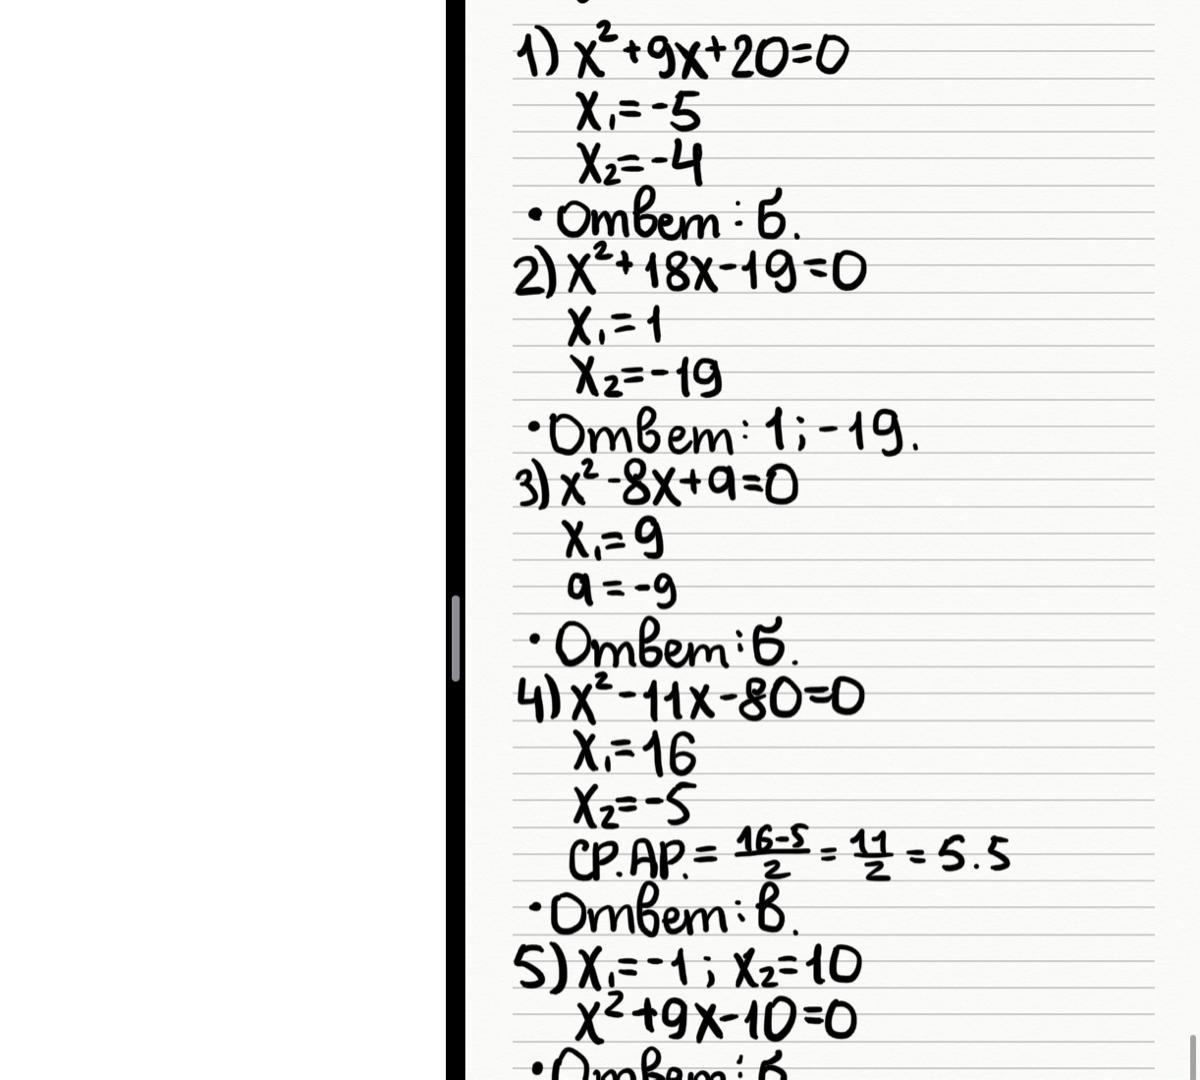 1) x²+9x+20=0
x₁=-5
x₂=-4
• Ответ: б.
2) x²+18x-19=0
x₁=1
x₂=-19
• Ответ: 1; -19.
3) x²-8x+a=0
x₁=9
a=-9
• Ответ: б.
4) x²-11x-80=0
x₁=16
x₂=-5
СР.АР.= 16-5/2 = 11/2 = 5.5
• Ответ: в.
5) x₁=-1; x₂=10
x²+9x-10=0
• Ответ: б